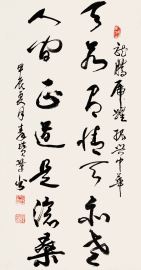 龙腾虎跃 振兴中华
天若有情天亦老
人间正道是沧桑
甲辰夏月